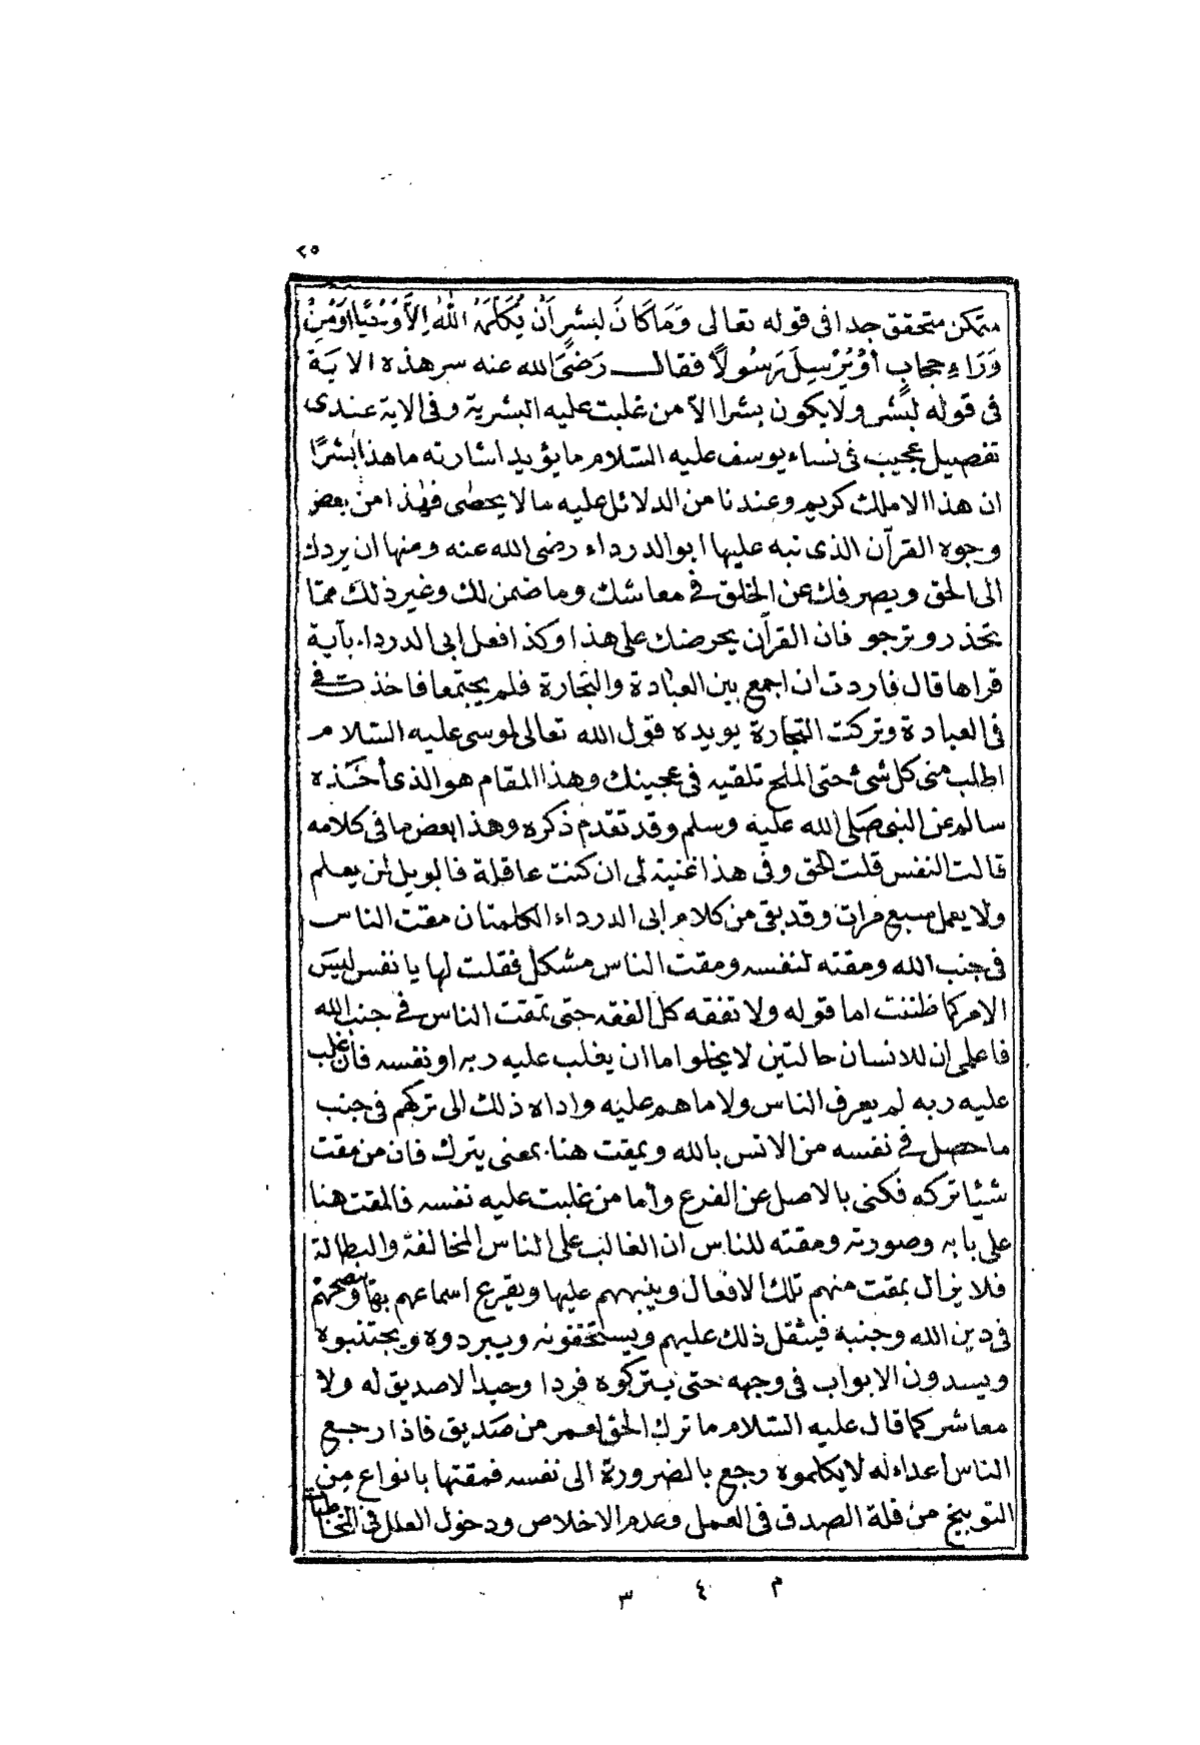 ٢٥
متمكن متحقق جدا فى قوله تعالى وَمَا كَانَ لِبَشَرٍ أَنْ يُكَلِّمَهُ اللهُ إِلَّا وَحْيًا اَوْمِنْ
وَرَاءِ حِجَابٍ أَوْيُرْسِلَ رَسُولًا فقال رَضِىَ الله عنه سر هذه الاية
فى قوله لبشر ولا يكون بشرا الا من غلبت عليه البشرية وفى الاية عندى
تفصيل عجيب فى نساء يوسف عليه السلام ما يؤيد اشارته ما هذا بشرًا
ان هذا الا ملك كريم وعندنا من الدلائل عليه ما لا يحصى فهذا من بعض
وجوه القرآن الذى نبه عليها ابو الدرداء رضى الله عنه ومنها ان يردك
الى الحق ويصرفك عن الخلق فى معاشك وما ضمن لك وغير ذلك ممّا
تحذر وترجو فان القرآن يحرضك على هذا وكذا فعل ابى الدرداء بآية
قراها قال فاردت ان اجمع بين العبادة والتجارة فلم يجتمعا فاخذت فى
فى العبادة وتركت التجارة يويده قول الله تعالى لموسى عليه السلام
اطلب منى كل شئ حتى الملح تلقيه فى عجينك وهذا المقام هو الذى أخذه
سالم عن النبى صلى الله عليه وسلم وقد تقدم ذكره وهذا بعض ما فى كلامه
قالت النفس قلت الحق وفى هذا غنية لى ان كنت عاقلة فالويل لمن يعلم
ولا يعمل سبع مرات وقد بقى من كلام ابى الدرداء الكلمتان مقت الناس
فى جنب الله ومقته لنفسه ومقت الناس مشكل فقلت لها يا نفس ليس
الامر كما ظننت اما قوله ولا تفقه كل الفقه حتى تمقت الناس فى جنب الله
فاعلمى ان للانسان حالتين لا يخلو اما ان يغلب عليه ربه او نفسه فان غلب
عليه ربه لم يعرف الناس ولا ما هم عليه واداه ذلك الى تركهم فى جنب
ما حصل فى نفسه من الانس بالله ويمقت هنا بمعنى يترك فان من مقت
شيئا تركه فكنى بالاصل عن الفرع وأما من غلبت عليه نفسه فالمقت هنا
على بابه وصورته ومقته للناس ان الغالب على الناس المخالفة والبطالة
فلا يزال يمقت منهم تلك الافعال وينبههم عليها ويقرع اسماعهم بها وينصحهم
فى دين الله وجنبه فيثقل ذلك عليهم ويستخفونه ويبردوه ويجتنبوه
ويسدون الابواب فى وجهه حتى يتركوه فردا وحيدا لا صديق له ولا
معاشر كما قال عليه السلام ما ترك الحق لعمر من صديق فاذا رجع
الناس اعداء له لا يكلموه رجع بالضرورة الى نفسه فمقتها بانواع من
التوبيخ من قلة الصدق فى العمل وعدم الاخلاص ودخول العلل فى
م ٤ ٣